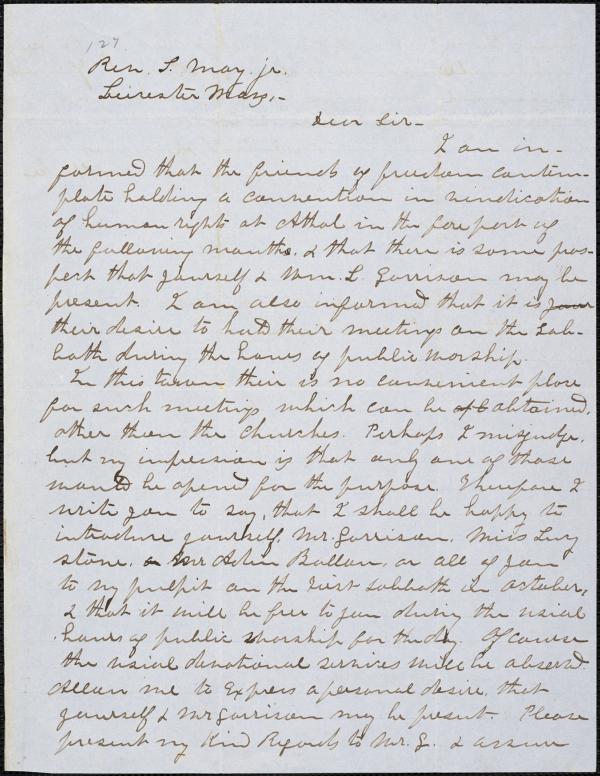 127
Rev. S. May. jr.
Leicester Mass.-
Dear Sir-
I am in-
formed that the friends of freedom contem-
plate holding a convention in vindication
of human rights at Athol in the forepart of
the following month, & that there is some pros-
pect that yourself & Wm. L. Garrison may be
present. I am also informed that it is
their desire to hold their meetings on the Sab-
bath during the hours of public worship.
In this town their is no convenient place
for such meetings which can be obtained,
other than the Churches. Perhaps I misjudge,
but my impression is that only one of those
would be opened for the purpose. Therefore I
write you to say, that I shall be happy to
introduce yourself, Mr. Garrison, Miss Lucy
Stone, Mr Adin Ballou, or all of you
to my pulpit on the first Sabbath in October,
& that it will be free to you during the usial
hours of public worship for the day. Of course
the usial devotional services will be observd.
Allow me to Express a personal desire, that
yourself & Mr Garrison may be present. Please
present my Kind Regards to Mr. G. & assure